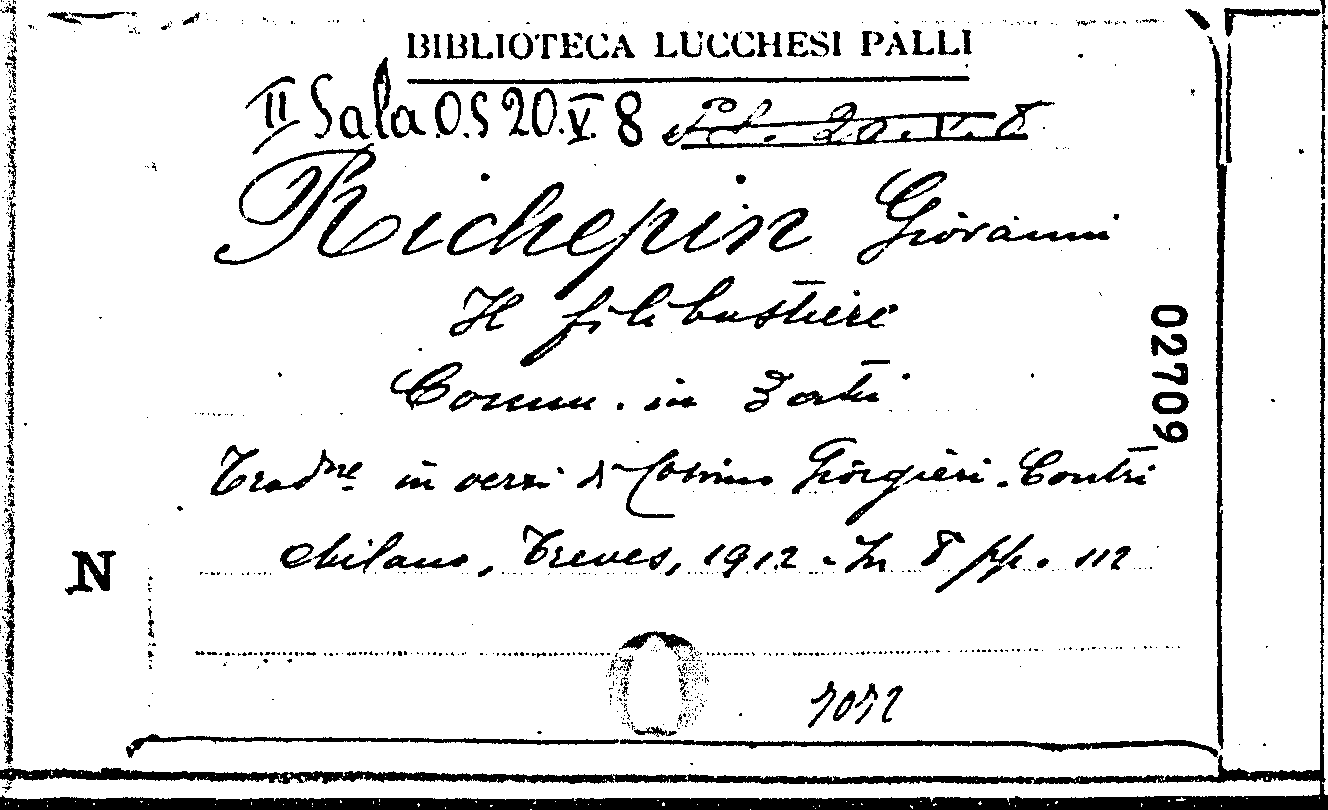 BIBLIOTECA LUCCHESI PALLI
II Sala O.S 20.V. 8 P.L. 20.V.8
Richepin Giovanni
Il filibustiere
Comm. in 3 atti
Trad.ne in versi di Cosimo Giorgieri-Contri
Milano, Treves, 1912. In 8 pp. 112
02709
N
7072